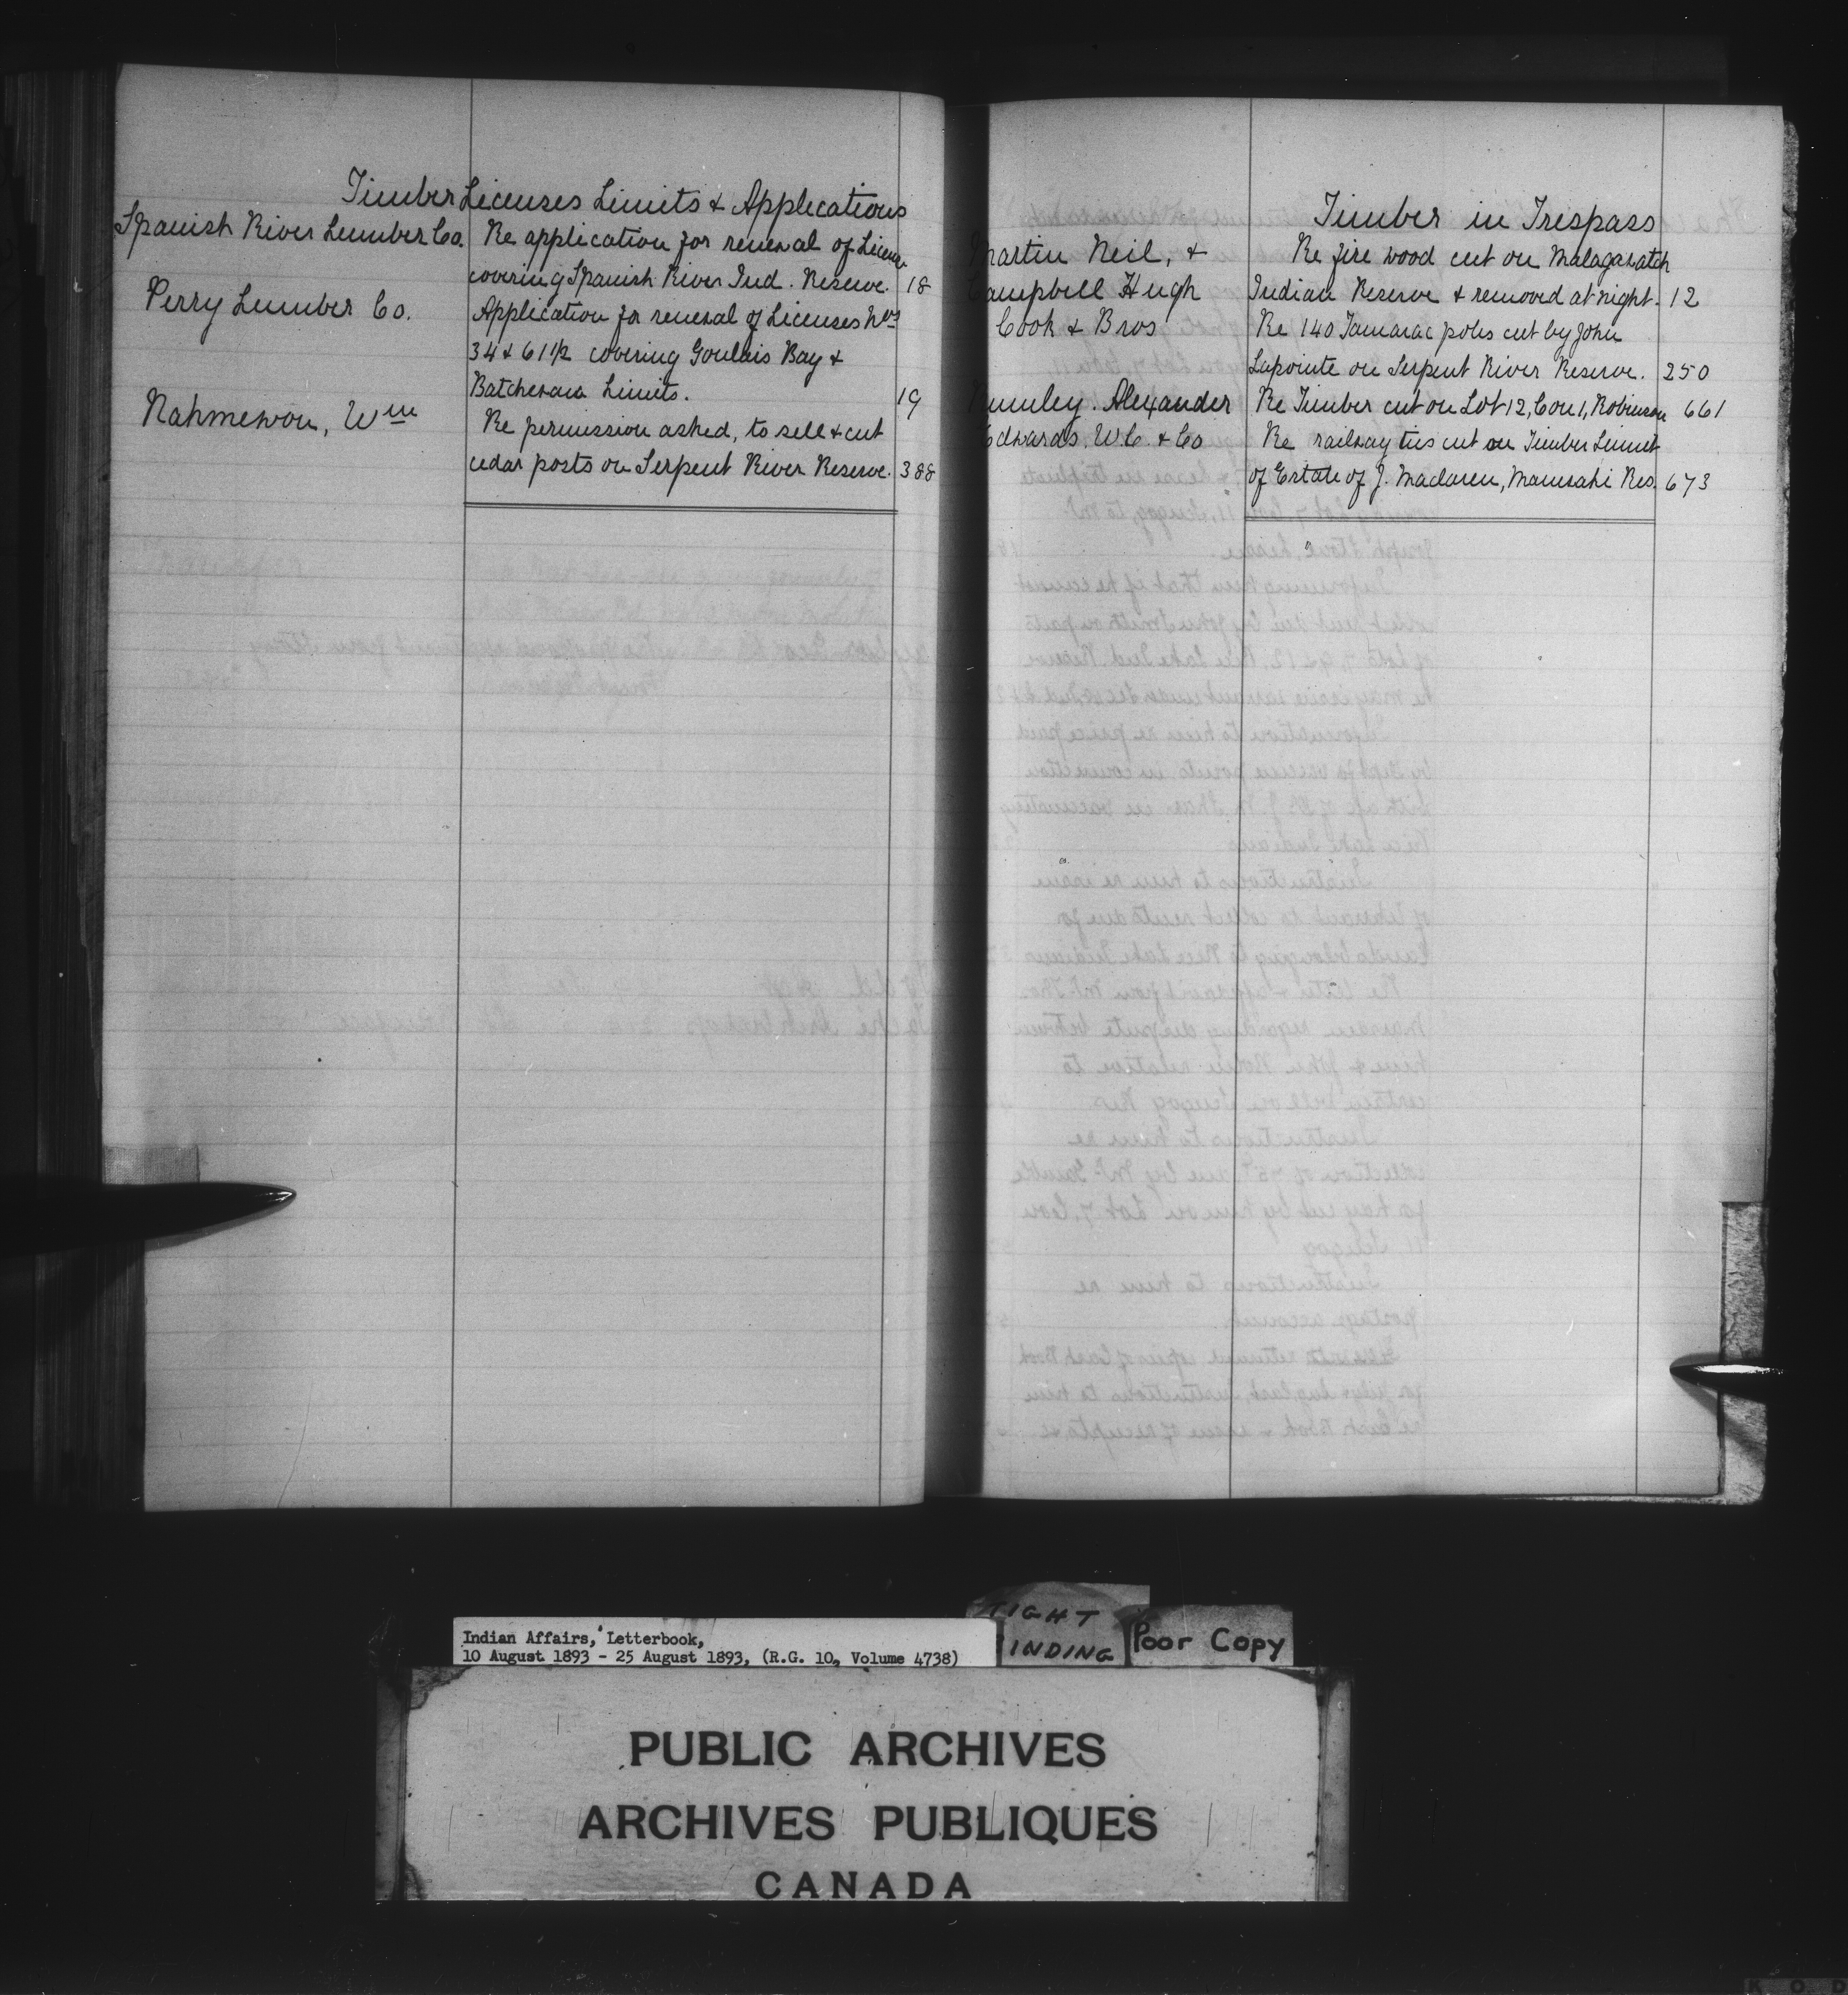 Timber Licenses Limits & Applications
Spanish River Lumber Co. Re application for renewal of License
covering Spanish River Ind. Reserve. 18
Perry Lumber Co. Application for renewal of Licenses Nos
34 & 61½ covering Goulais Bay &
Batchewana Limits. 19
Nahmewon, Wm Re permission asked, to sell & cut
cedar posts on Serpent River Reserve. 388
Timber in Trespass
Martin Neil, & Re fire wood cut on Malagawatch
Campbell Hugh Indian Reserve & removed at night. 12
Cook & Bros Re 140 Tamarac poles cut by John
Lapointe on Serpent River Reserve. 250
Alexander Re Timber cut on Lot 12, Con 1, Robinson 661
Edwards. W.C. & Co Re railway ties cut on Timber Limit
of Estate of J. Maclaren, Maniwaki Res. 673
Indian Affairs, Letterbook,
10 August 1893 - 25 August 1893, (R.G. 10, Volume 4738)
TIGHT
BINDING
Poor Copy
PUBLIC ARCHIVES
ARCHIVES PUBLIQUES
CANADA